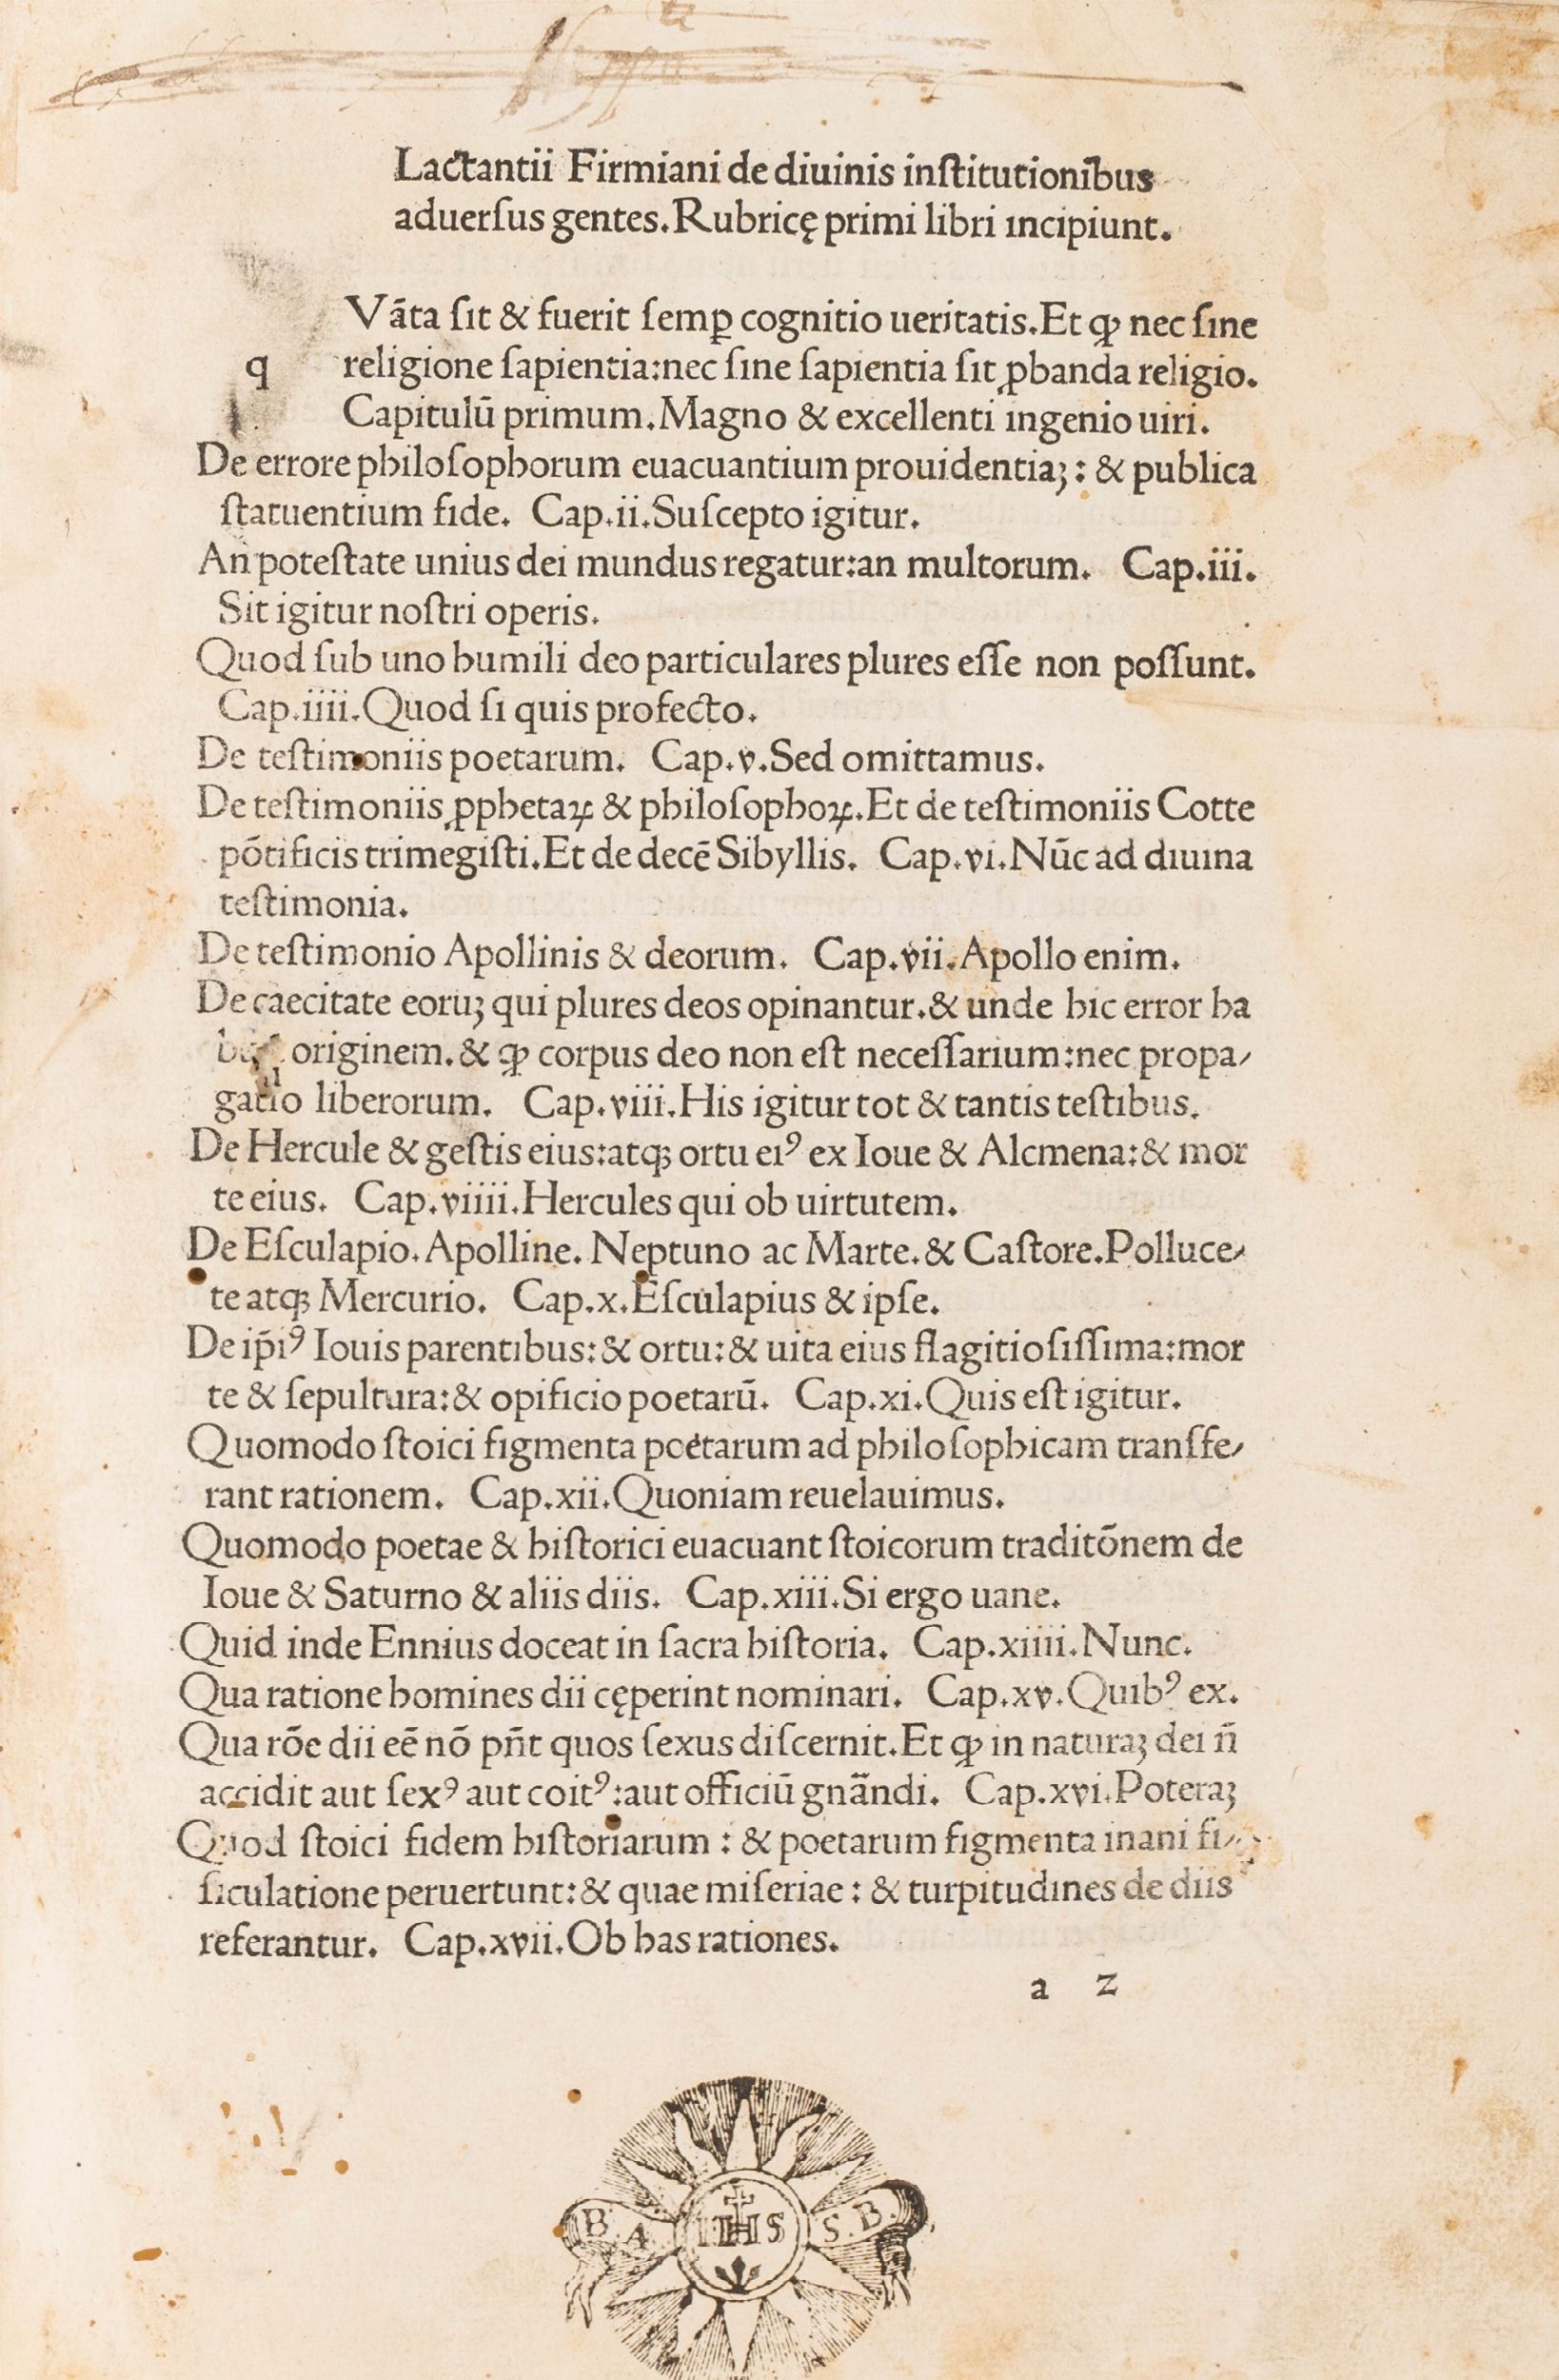 Lactantii Firmiani de diuinis inſtitutionibus
aduerſus gentes.Rubricę primi libri incipiunt.
Vāta ſit & fuerit ſemꝑ cognitio ueritatis.Et ꝙ nec ſine
q religione ſapientia:nec ſine ſapientia ſit ꝓbanda religio.
Capitulū primum.Magno & excellenti ingenio uiri.
De errore philoſophorum euacuantium prouidentiaꝫ: & publica
ſtatuentium fide. Cap.ii.Suſcepto igitur.
An poteſtate unius dei mundus regatur:an multorum. Cap.iii.
Sit igitur noſtri operis.
Quod ſub uno humili deo particulares plures eſſe non poſſunt.
Cap.iiii.Quod ſi quis profecto.
De teſtimoniis poetarum. Cap.v.Sed omittamus.
De teſtimoniis ꝓphetaꝝ & philoſophoꝝ.Et de teſtimoniis Cotte
pōtificis trimegiſti.Et de decē Sibyllis. Cap.vi.Nūc ad diuina
teſtimonia.
De teſtimonio Apollinis & deorum. Cap.vii.Apollo enim.
De caecitate eoruꝫ qui plures deos opinantur.& unde hic error ha
originem.& ꝙ corpus deo non eſt neceſſarium:nec propa/
gatio liberorum. Cap.viii.His igitur tot & tantis teſtibus.
De Hercule & geſtis eius:atqꝫ ortu eiꝰ ex Ioue & Alcmena:& mor
te eius. Cap.viiii.Hercules qui ob uirtutem.
De Eſculapio.Apolline.Neptuno ac Marte.& Caſtore.Polluce/
te atqꝫ Mercurio. Cap.x.Eſculapius & ipſe.
De ip̄iꝰ Iouis parentibus:& ortu:& uita eius flagitioſiſſima:mor
te & ſepultura:& opificio poetarū. Cap.xi.Quis eſt igitur.
Quomodo ſtoici figmenta poetarum ad philoſophicam tranſfe/
rant rationem. Cap.xii.Quoniam reuelauimus.
Quomodo poetae & hiſtorici euacuant ſtoicorum traditōnem de
Ioue & Saturno & aliis diis. Cap.xiii.Si ergo uane.
Quid inde Ennius doceat in ſacra hiſtoria. Cap.xiiii.Nunc.
Qua ratione homines dii cęperint nominari. Cap.xv.Quibꝰ ex.
Qua rōe dii eē nō pn̄t quos ſexus diſcernit.Et ꝙ in naturaꝫ dei n̄
accidit aut ſexꝰ aut coitꝰ:aut officiū gnāndi. Cap.xvi.Poteraꝫ
Quod ſtoici fidem hiſtoriarum : & poetarum figmenta inani fi/
ſiculatione peruertunt:& quae miſeriae : & turpitudines de diis
referantur. Cap.xvii.Ob has rationes.
a 2
B.A IHS S.B.